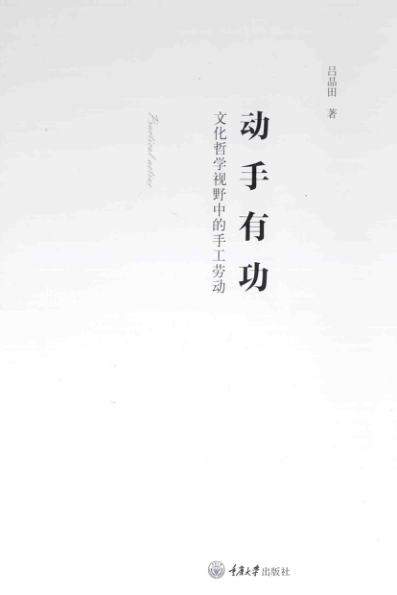 吕品田 著
动手有功
文化哲学视野中的手工劳动
Practical action
重庆大学出版社